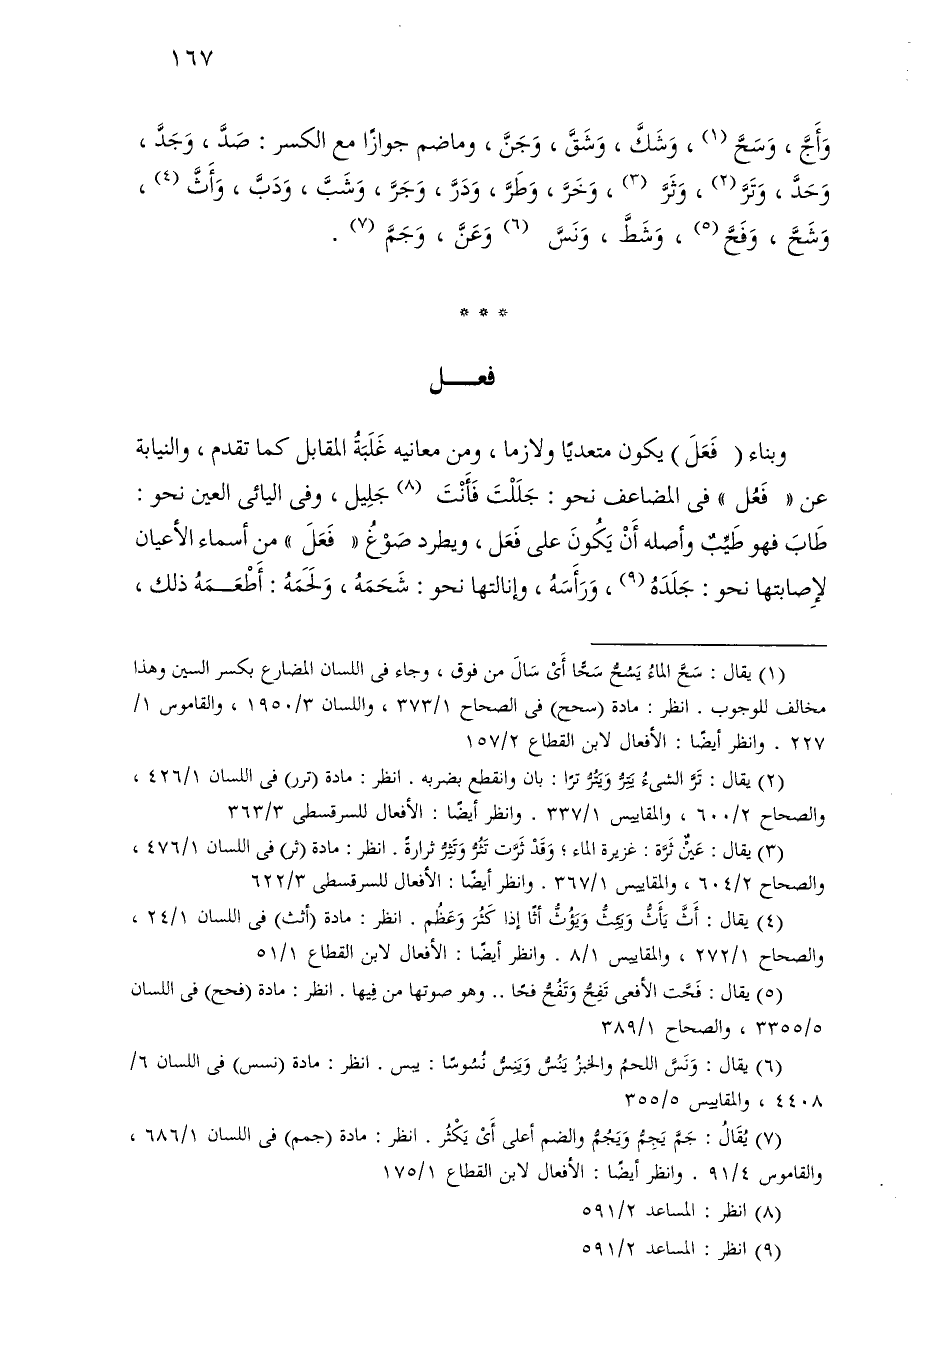 ١٦٧
وَأَجَّ ، وَسَحَّ (١) ، وَشَكَّ ، وَشَقَّ ، وَجَنَّ ، وماضم جوازًا مع الكسر : صَدَّ ، وَجَدَّ ،
وَحَدَّ ، وَتَرَّ (٢) ، وَثَرَّ (٣) ، وَخَرَّ ، وَطَرَّ ، وَدَرَّ ، وَجَرَّ ، وَشَبَّ ، وَدَبَّ ، وَأَثَّ (٤) ،
وَشَحَّ ، وَفَحَّ (٥) ، وَشَطَّ ، وَنَسَّ (٦) وَعَنَّ ، وَجَمَّ (٧) .
* * *
فعـــل
وبناء ( فَعَلَ ) يكون متعديًا ولازما ، ومن معانيه غَلَبَةُ المقابل كما تقدم ، والنيابة
عن « فَعُل » فى المضاعف نحو : جَلَلْتَ فَأَنْتَ (٨) جَلِيل ، وفى اليائى العين نحو :
طَابَ فهو طَيِّبٌ وأصله أَنْ يَكُونَ على فَعَل ، ويطرد صَوْغُ « فَعَلَ » من أسماء الأعيان
لإصابتها نحو : جَلَدَهُ (٩) ، وَرَأَسَهُ ، وإنالتها نحو : شَحَمَهُ ، وَلَحَمَهُ : أَطْعَـــمَهُ ذلك ،
(١) يقال : سَحَّ الماءُ يَسُحُّ سَحًّا أَىْ سَالَ من فوق ، وجاء فى اللسان المضارع بكسر السين وهذا
مخالف للوجوب . انظر : مادة (سحح) فى الصحاح ٣٧٣/١ ، واللسان ١٩٥٠/٣ ، والقاموس ١/
٢٢٧ . وانظر أيضًا : الأفعال لابن القطاع ١٥٧/٢
(٢) يقال : تَرَّ الشىءُ يَتِرُّ وَيَتُرُّ ترًا : بان وانقطع بضربه . انظر : مادة (ترر) فى اللسان ٤٢٦/١ ،
والصحاح ٦٠٠/٢ ، والمقاييس ٣٣٧/١ . وانظر أيضًا : الأفعال للسرقسطى ٣٦٣/٣
(٣) يقال : عَينٌ ثَرَّة : غزيرة الماء ؛ وَقَدْ ثَرَّت تَثُرُّ وَتَثِرُّ ثرارةً . انظر : مادة (ثر) فى اللسان ٤٧٦/١ ،
والصحاح ٦٠٤/٢ ، والمقاييس ٣٦٧/١ . وانظر أيضًا : الأفعال للسرقسطى ٦٢٢/٣
(٤) يقال : أَثَّ يَأَثُّ وَيَئِثُّ وَيَؤُثُّ أثًا إذا كَثُرَ وَعَظُم . انظر : مادة (أثث) فى اللسان ٢٤/١ ،
والصحاح ٢٧٢/١ ، والمقاييس ٨/١ . وانظر أيضًا : الأفعال لابن القطاع ٥١/١
(٥) يقال : فَحَّت الأفعى تَفِحُّ وَتَفُحُّ فحًا .. وهو صوتها من فِيها . انظر : مادة (فحح) فى اللسان
٣٣٥٥/٥ ، والصحاح ٣٨٩/١
(٦) يقال : وَنَسَّ اللحمُ والخبزُ يَنُسُّ وَيَنِسُّ نُسُوسًا : يبس . انظر : مادة (نسس) فى اللسان ٦/
٤٤٠٨ ، والمقاييس ٣٥٥/٥
(٧) يُقَالُ : جَمَّ يَجِمُّ وَيَجُمُّ والضم أعلى أَىْ يَكْثُر . انظر : مادة (جمم) فى اللسان ٦٨٦/١ ،
والقاموس ٩١/٤ . وانظر أيضًا : الأفعال لابن القطاع ١٧٥/١
(٨) انظر : المساعد ٥٩١/٢
(٩) انظر : المساعد ٥٩١/٢